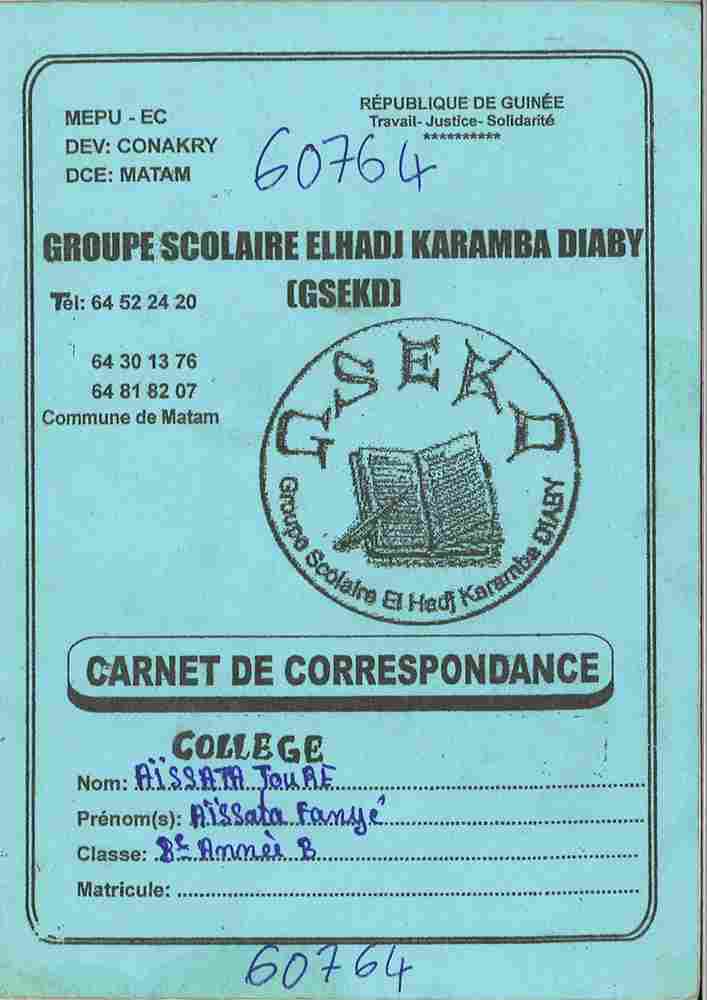 MEPU - EC
DEV: CONAKRY
DCE: MATAM
RÉPUBLIQUE DE GUINÉE
Travail- Justice- Solidarité
**********
60764
GROUPE SCOLAIRE ELHADJ KARAMBA DIABY
(GSEKD)
Tél: 64 52 24 20
64 30 13 76
64 81 82 07
Commune de Matam
GSEKD
Groupe Scolaire El Hadj Karamba DIABY
CARNET DE CORRESPONDANCE
COLLEGE
Nom: AÏSSATA TOURE
Prénom(s): Aïssata Fanyé
Classe: 8e Année B
Matricule:
60764